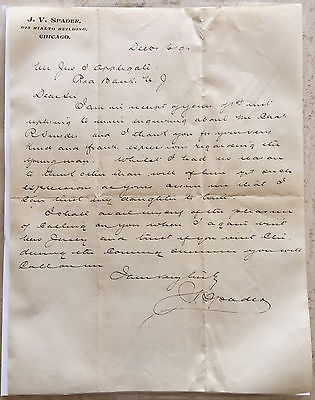 J. V. SPADER,
RIALTO BUILDING,
CHICAGO.
Mr Jno S Applegate
Red Bank N J
Dear Sir
I am in receipt of yours
replying to mine enquiring about Mr
R Snider and I thank you for your very
kind and frank expression regarding the
young man. Whilst I had no reason
to think other than well of him yet such
expression as yours assures me that I
can trust my daughter to him.
I shall avail myself of the pleasure
of calling on you when I again visit
New Jersey and trust if you visit Chi.
during the coming you will
call on me
I am very truly
J V Spader